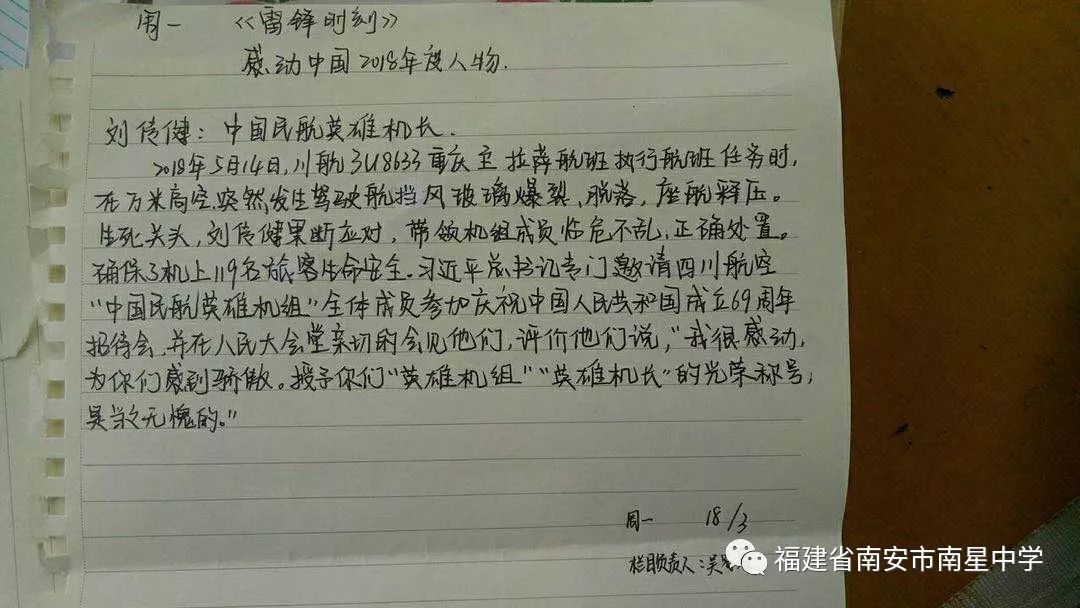 周一 《雷锋时刻》
感动中国2018年度人物.
刘传健：中国民航英雄机长.
2018年5月14日,川航3U8633重庆至拉萨航班执行航班任务时,
在万米高空突然发生驾驶航挡风玻璃爆裂、脱落,座航释压。
生死关头,刘传健果断应对,带领机组成员临危不乱,正确处置。
确保了机上119名旅客生命安全.习近平总书记专门邀请四川航空
“中国民航英雄机组”全体成员参加庆祝中国人民共和国成立69周年
招待会,并在人民大会堂亲切的会见他们,评价他们说,“我很感动,
为你们感到骄傲。授予你们“英雄机组”“英雄机长”的光荣称号,
是当之无愧的。”
周一 18/3
栏目负责人:吴
福建省南安市南星中学